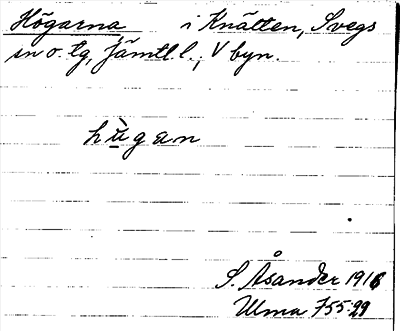 Högarna i Knätten, Svegs
sn o. tg, Jämtl. l., V byn.
hùgan
S. Åsander 1916
Ulma 755:29